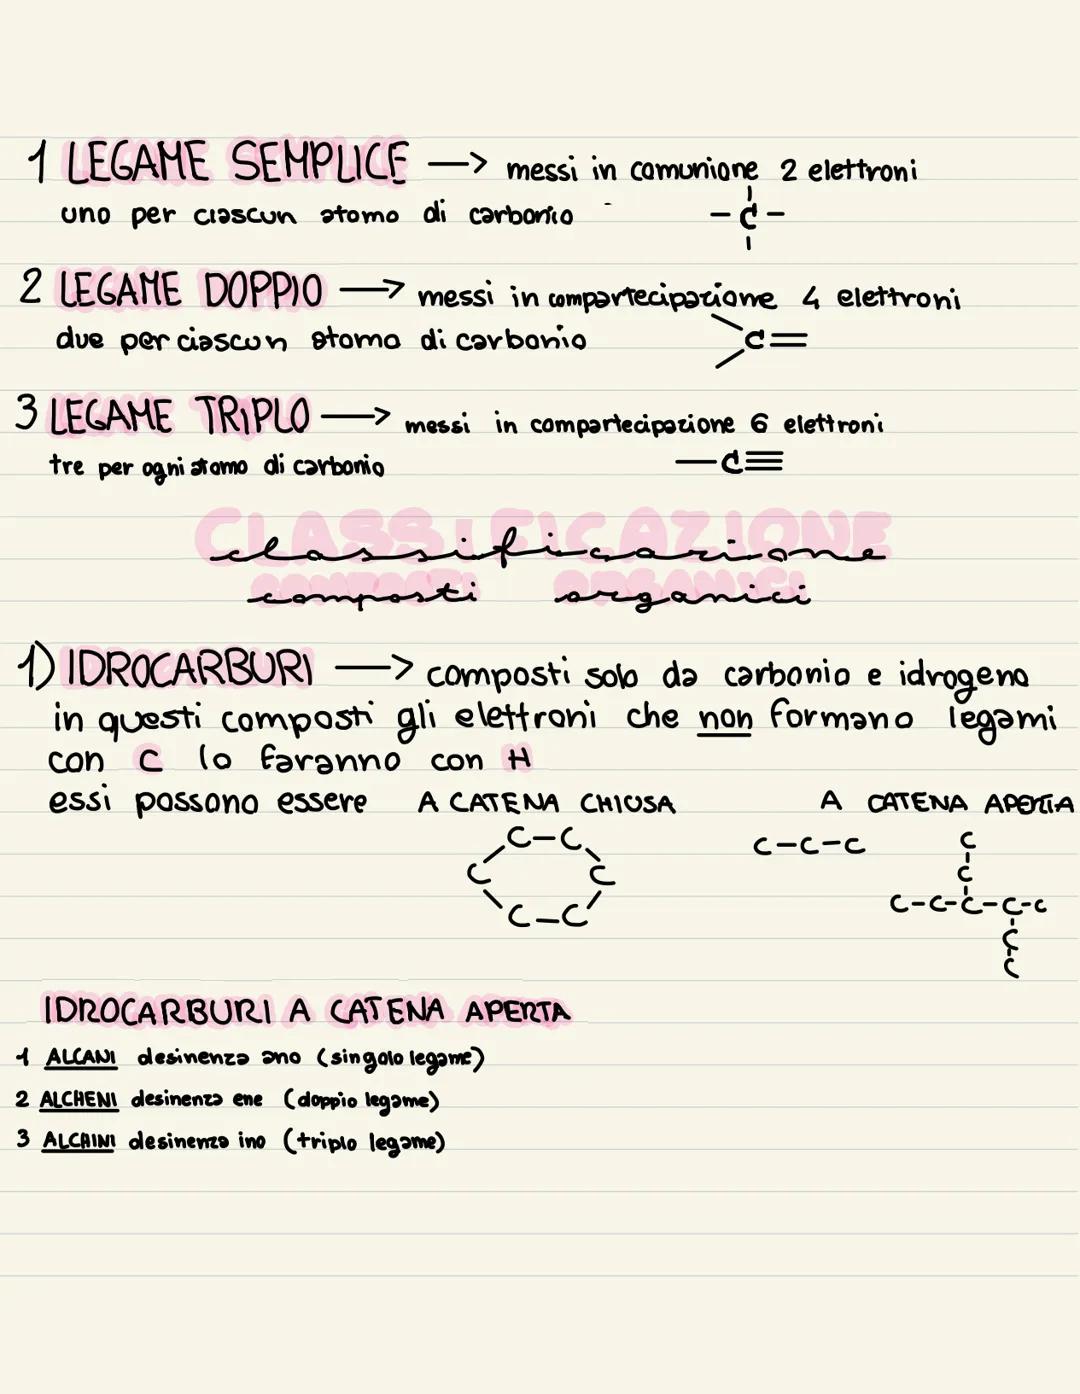 1 LEGAME SEMPLICE → messi in comunione 2 elettroni
uno per ciascun atomo di carbonio
-C-
2 LEGAME DOPPIO → messi in compartecipazione 4 elettroni
due per ciascun atomo di carbonio
C=
3 LEGAME TRIPLO → messi in compartecipazione 6 elettroni
tre per ogni atomo di carbonio
—C≡
CLASSIFICAZIONE
classificazione
COMPOSTI ORGANICI
composti organici
1) IDROCARBURI → composti solo da carbonio e idrogeno
in questi composti gli elettroni che non formano legami
con C lo faranno con H
essi possono essere A CATENA CHIUSA A CATENA APERTA
C-C
C C
C-C
C-C-C
C
C
C-C-C-C-C
C
C
IDROCARBURI A CATENA APERTA
1 ALCANI desinenza ano (singolo legame)
2 ALCHENI desinenza ene (doppio legame)
3 ALCHINI desinenza ino (triplo legame)